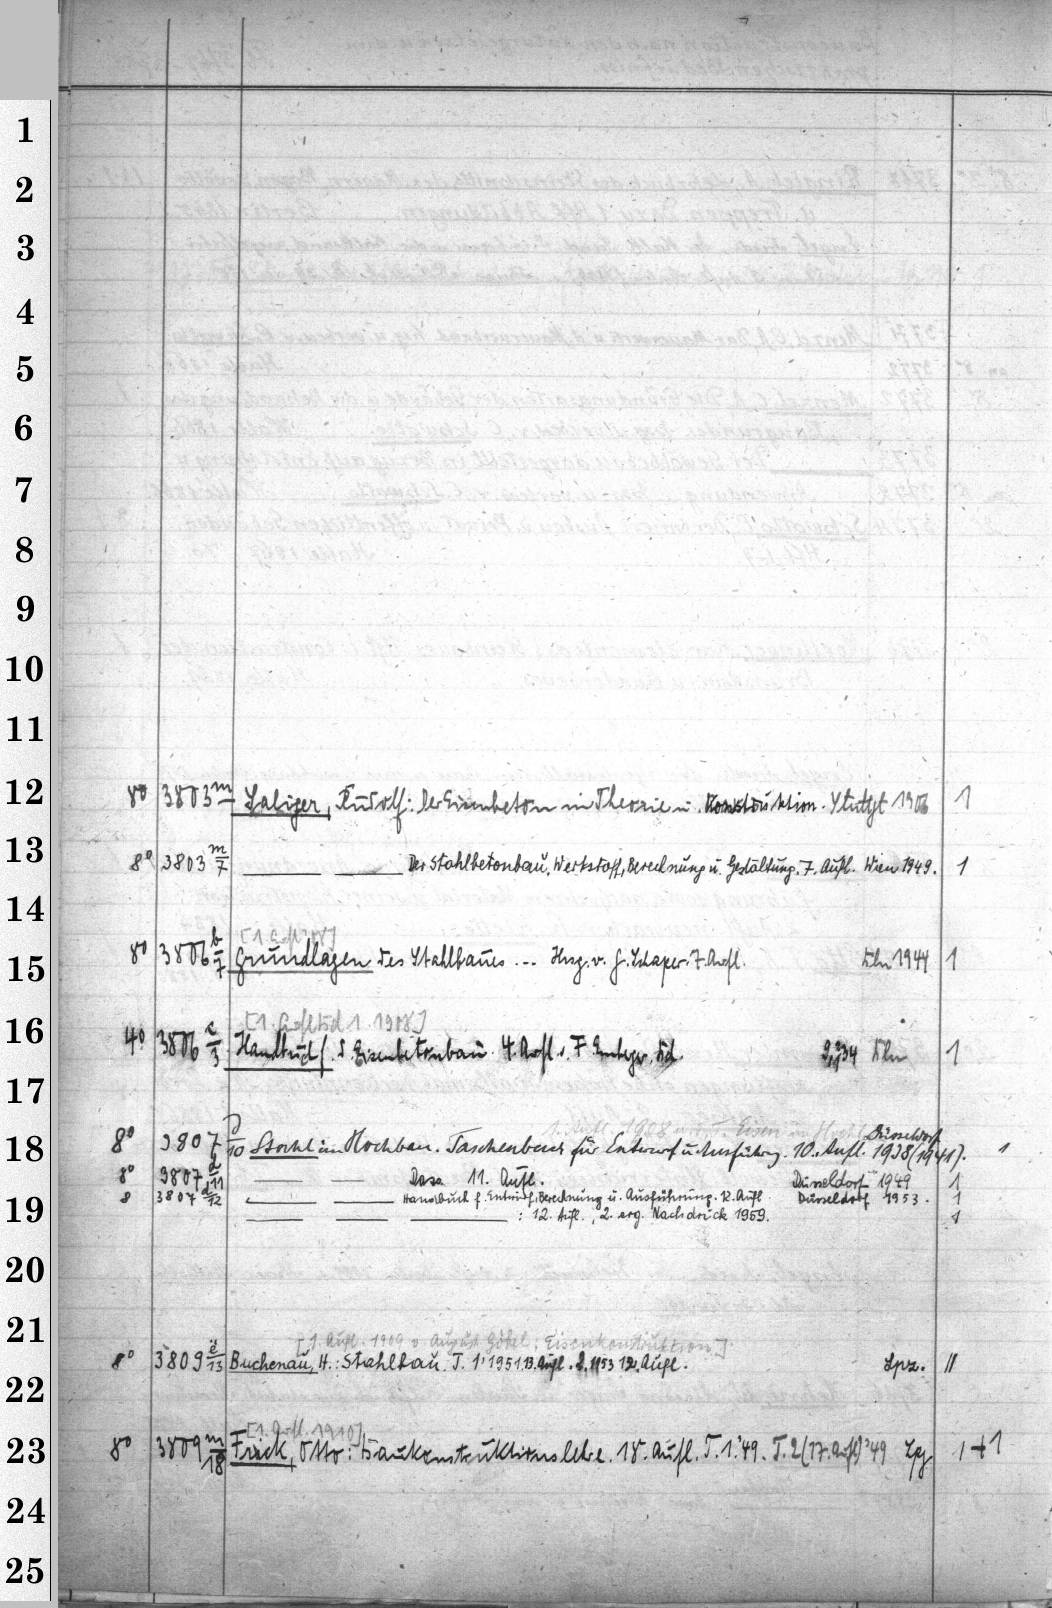 1
2
3
4
5
6
7
8
9
10
11
12
8° 3803 m Saliger, Rudolf: Der Eisenbeton in Theorie u. Konstruktion. Stuttgt 1906 1
13
8° 3803 m/7 Der Stahlbetonbau, Werkstoff, Berechnung u. Gestaltung. 7. Aufl. Wien 1949. 1
14
8° 3806 b/7 Grundlagen des Stahlbaues ... Hrsg. v. G. Schaper. 7. Aufl. Bln 1944 1
15
16
[1. Aufl. Bd 1. 1908]
4° 3806 c/3 Handbuch f. Eisenbetonbau. 4. Aufl. Bd. 1934 Bln 1
17
1. Aufl. 1908 Eisen im Hochbau
18
8° 3807 /10 Stahl im Hochbau. Taschenbuch für Entwurf u. Ausführung. 10. Aufl. Düsseldorf 1938 (1941). 1
8° 3807 d/11 Dass. 11. Aufl. Düsseldorf 1949 1
8 3807 d/12 Handbuch f. Entwurf, Berechnung u. Ausführung. 12. Aufl. Düsseldorf 1953. 1
19
: 12. Aufl., 2. erg. Nachdruck 1959. 1
20
21
[1. Aufl. 1909 v. August Göbel: Eisenkonstruktion.]
8° 3809 /13 Buchenau, H.: Stahlbau. T. 1. 1951 13. Aufl. 2. 1953 12. Aufl. Lpz. II
22
[1. Aufl. 1910]
23
8° 3809 m/18 Frick, Otto: Baukonstruktionslehre. 18. Aufl. T. 1. '49. T. 2 (17. Aufl.) '49 Lpz 1+1
24
25